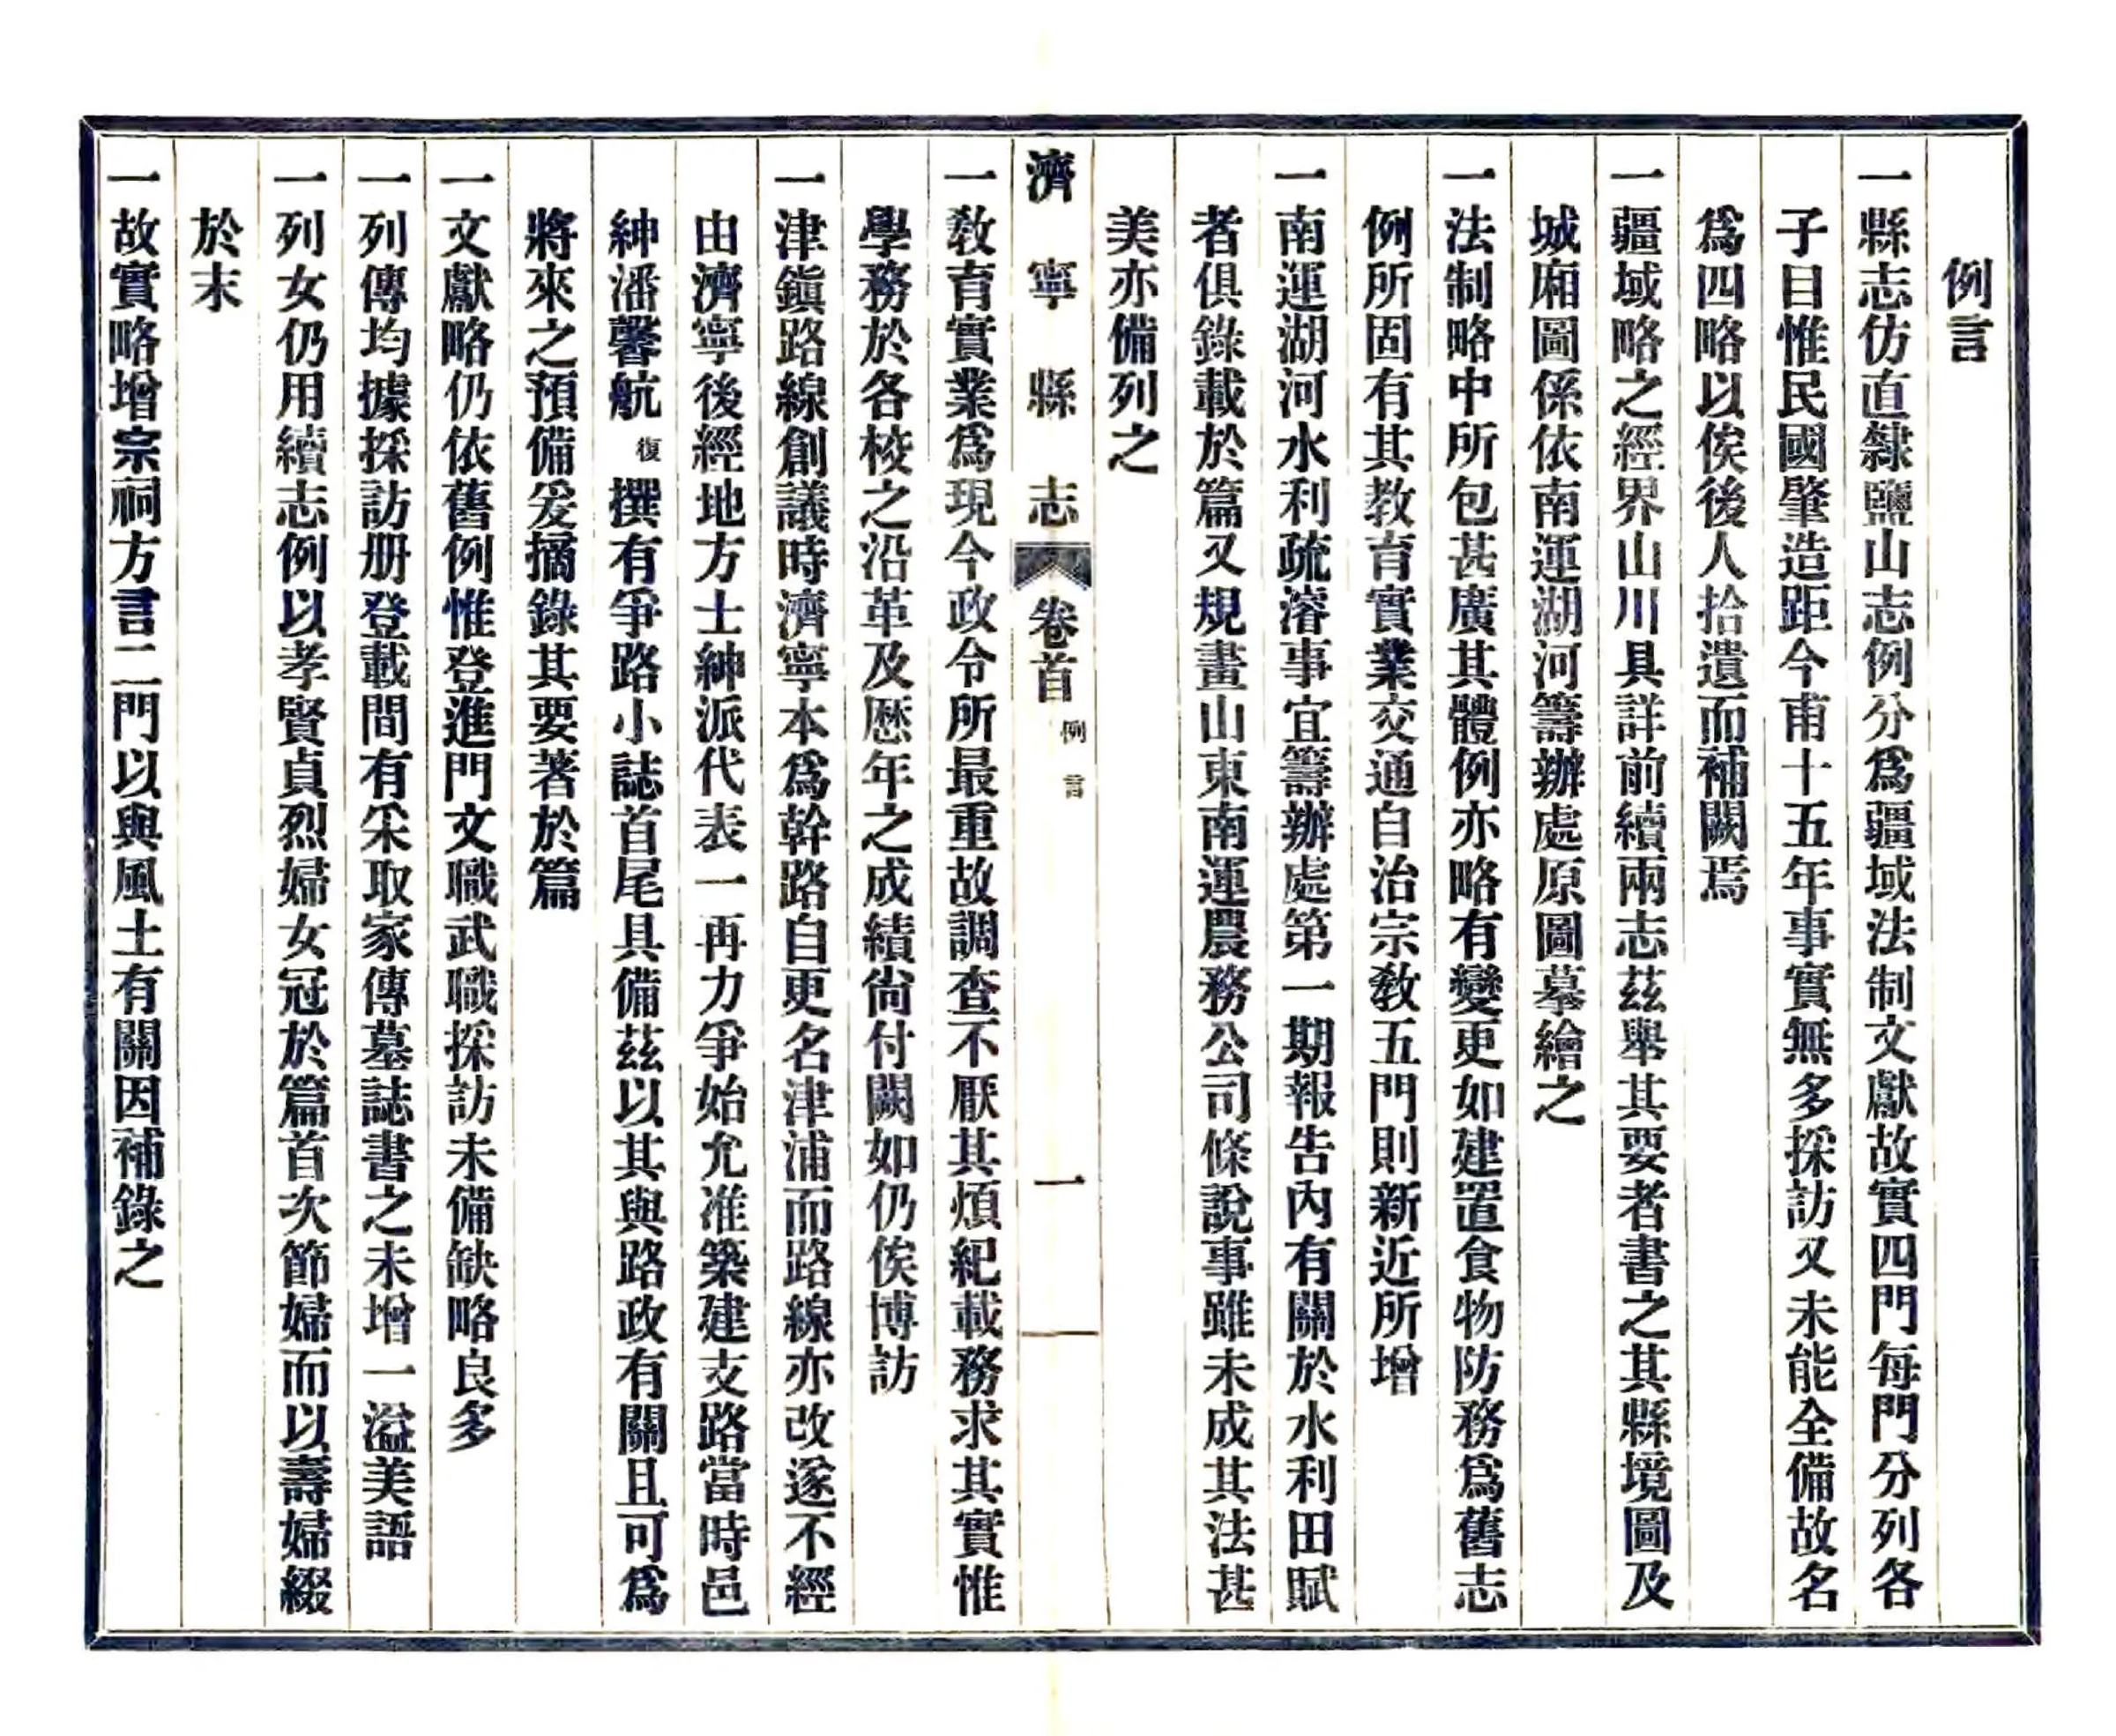 例言
一縣志仿直隸鹽山志例分爲疆域法制文獻故實四門每門分列各
子目惟民國肇造距今甫十五年事實無多採訪又未能全備故名
爲四略以俟後人拾遺而補闕焉
一疆域略之經界山川具詳前續兩志茲舉其要者書之其縣境圖及
城廂圖係依南運湖河籌辦處原圖摹繪之
一法制略中所包甚廣其體例亦略有變更如建置食物防務爲舊志
例所固有其教育實業交通自治宗敎五門則新近所增
一南運湖河水利疏濬事宜籌辦處第一期報告內有關於水利田賦
者俱錄載於篇又規畫山東南運農務公司條說事雖未成其法甚
美亦備列之
濟寧縣志 卷首 例言 一
一敎育實業爲現今政令所最重故調查不厭其煩紀載務求其實惟
學務於各校之沿革及歷年之成績尙付闕如仍俟博訪
一津鎭路線創議時濟寧本爲幹路自更名津浦而路線亦改遂不經
由濟寧後經地方士紳派代表一再力爭始允准築建支路當時邑
紳潘馨航復撰有爭路小誌首尾具備茲以其與路政有關且可爲
將來之預備爰摘錄其要著於篇
一文獻略仍依舊例惟登進門文職武職採訪未備缺略良多
一列傳均據採訪册登載間有采取家傳墓誌書之未增一溢美語
一列女仍用續志例以孝賢貞烈婦女冠於篇首次節婦而以壽婦綴
於末
一故實略增宗祠方言二門以與風土有關因補錄之